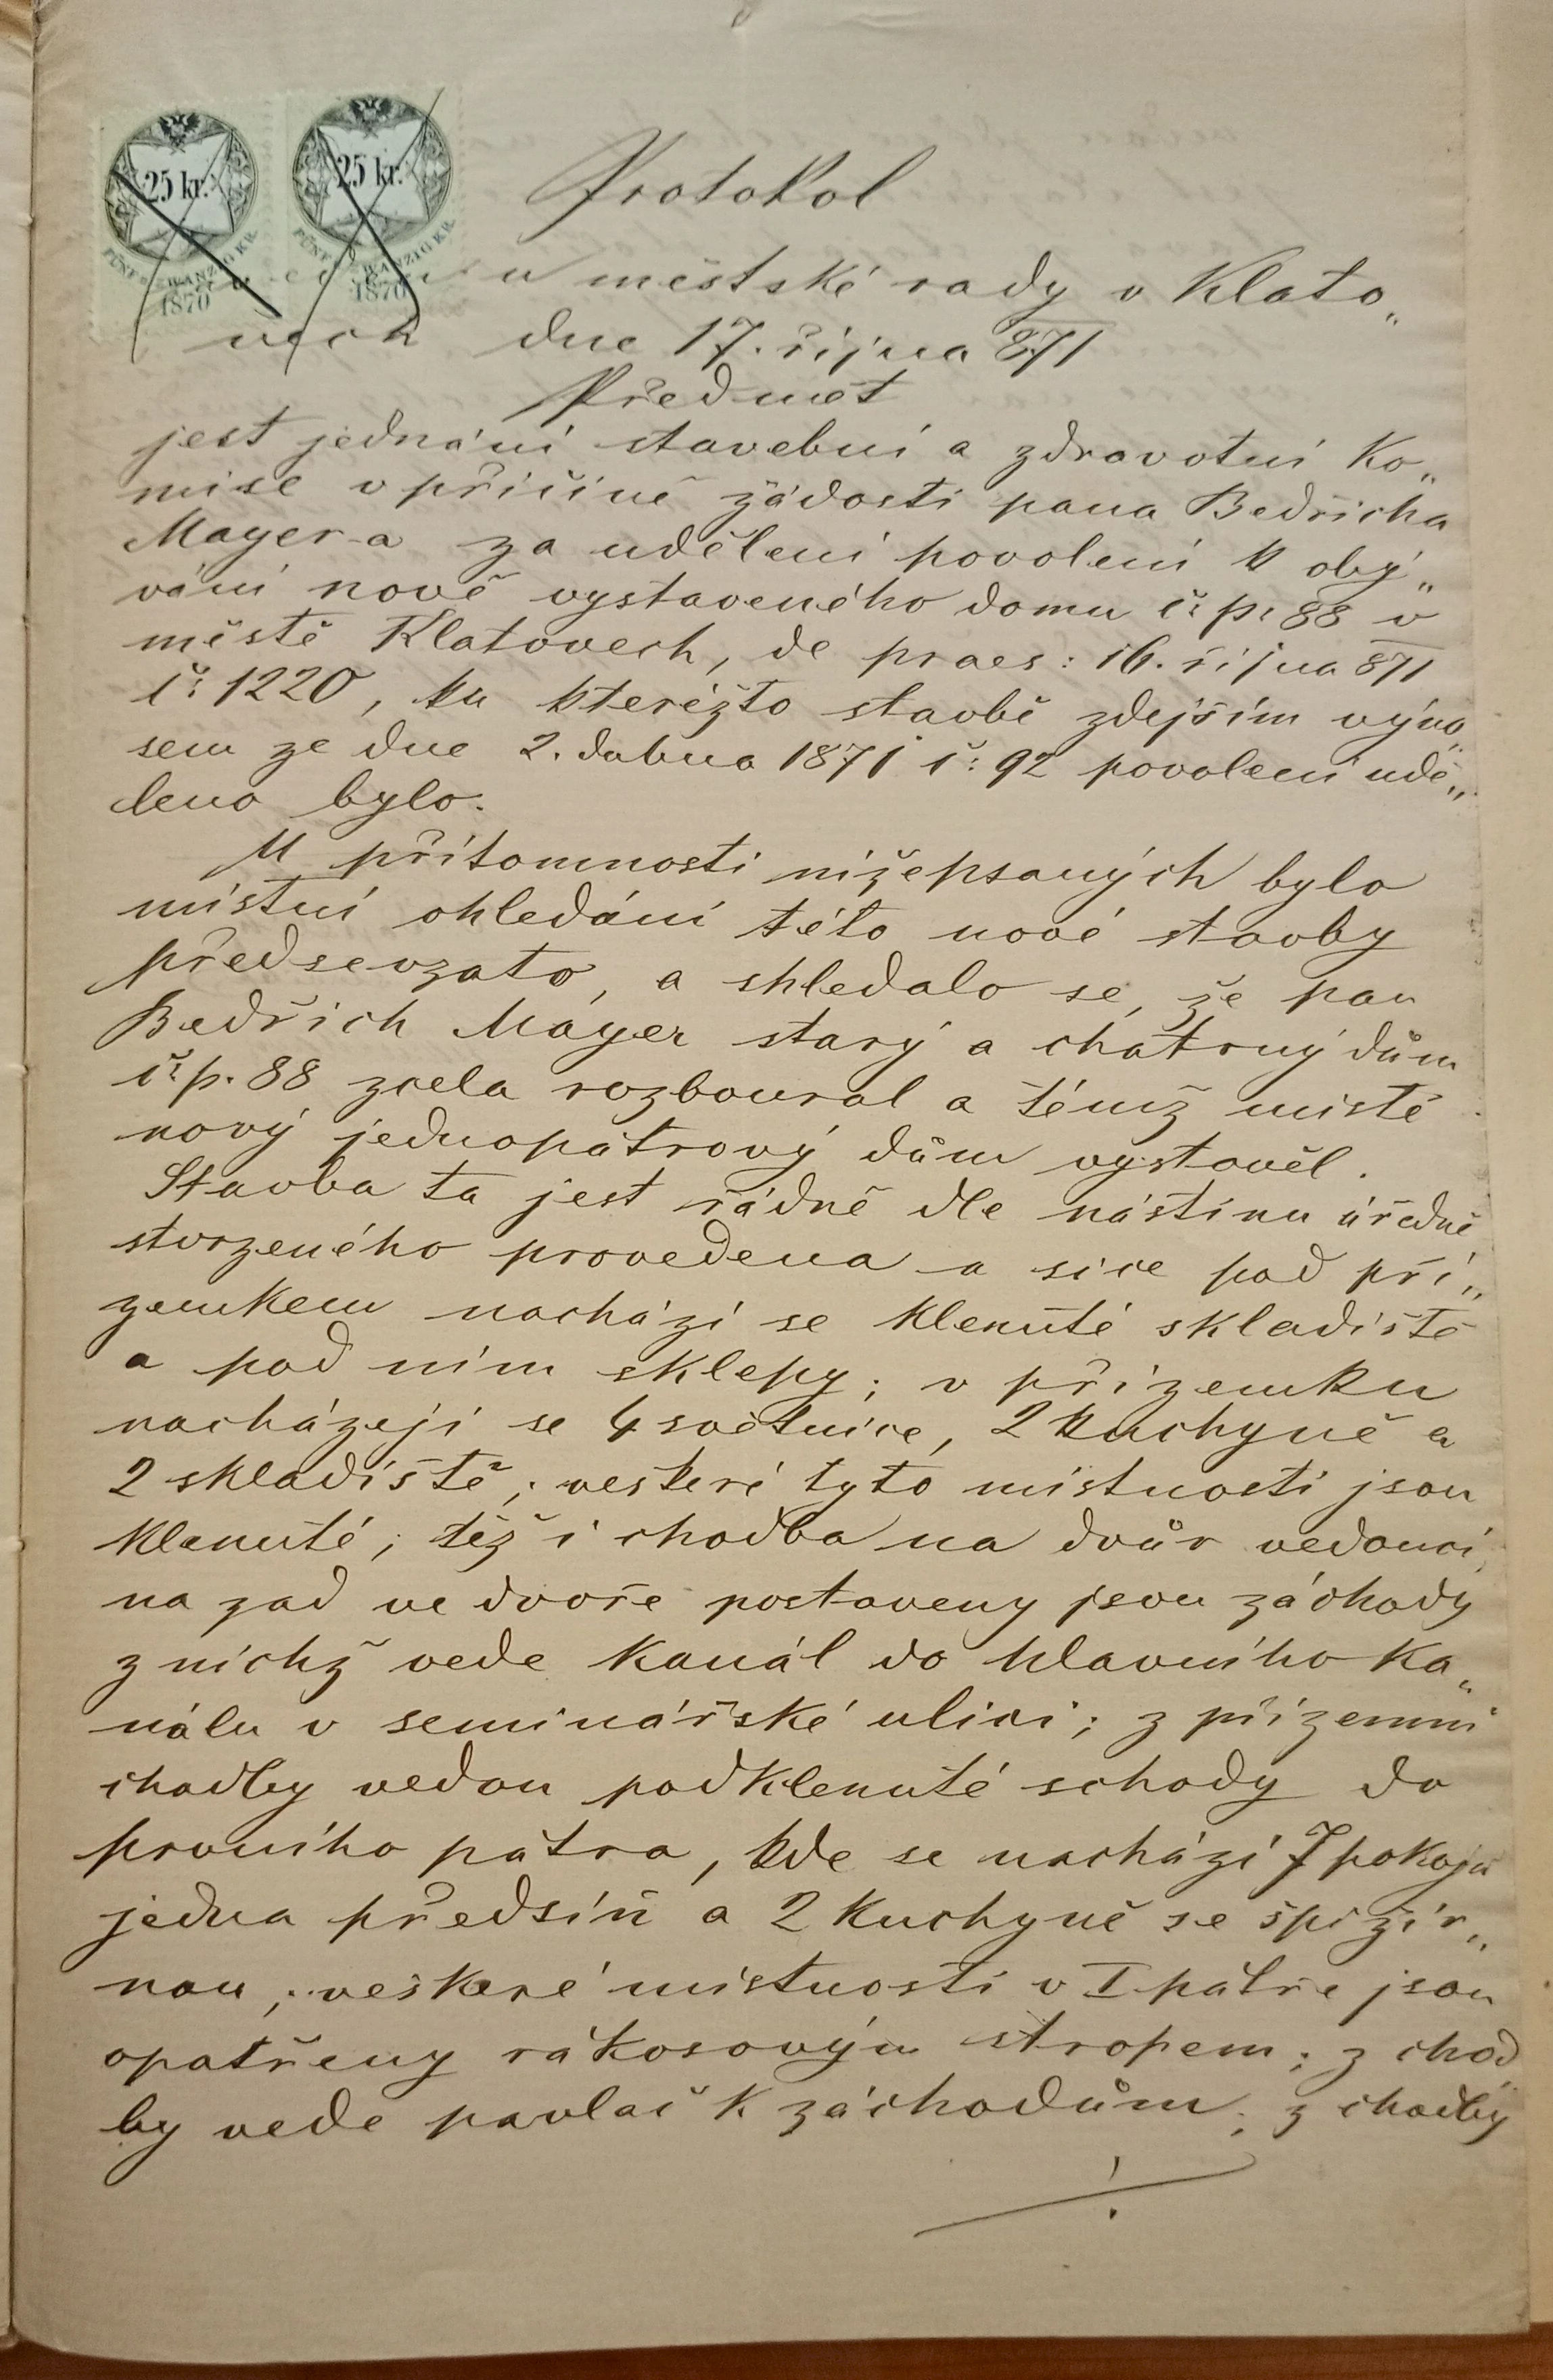 25 kr. 25 kr.
FÜNF ZWANZIG KR. FÜNF ZWANZIG KR.
1870 1870
Protokol
u městské rady v Klato„
vech dne 17. října 871
Předmět
jest jednání stavební a zdravotní ko„
mise v příčině žádosti pana Bedřicha
Mayer-a za udělení povolení k obý„
vání nově vystaveného domu č: p: 88 v
městě Klatovech, de praes: 16. října 871
č: 1220, ku kterémžto stavbě zdejším výno„
sem ze dne 2. dubna 1871 č: 92 povolení udě„
leno bylo.
U přítomnosti nížepsaných bylo
místní ohledání této nové stavby
předsevzato, a shledalo se, že pan
Bedřich Mayer starý a chatrný dům
č: p. 88 zcela rozboural a témž místě
nový jednopatrový dům vystavěl.
Stavba ta jest řádně dle nástinu úředně
stvrzeného provedena a sice pod pří„
zemkem nachází se klenuté skladiště
a pod ním sklepy; v přízemku
nacházejí se 4 světnice, 2 kuchyně a
2 skladiště; veškeré tyto místnosti jsou
klenuté; též i chodba na dvůr vedoucí,
na zad ve dvoře postaveny jsou záchody
z nichž vede kanál do hlavního ka„
nálu v seminářské ulici; z přízemní
chodby vedou podklenuté schody do
prvního patra, kde se nachází 7 pokojů
jedna předsíň a 2 kuchyně se špižír„
nou; veškeré místnosti v I patře jsou
opatřeny rákosovým stropem; z chod„
by vede pavlač k záchodům; z chodby
./.